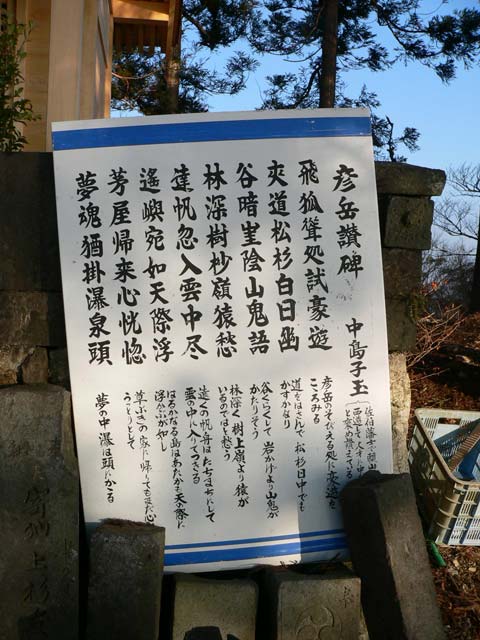 彦岳讃碑
中島子玉
飛狐聳処試豪遊
夾道松杉白日幽
谷暗崖陰山鬼語
林深樹杪嶺猿愁
遠帆忽入雲中尽
遙嶼宛如天際浮
芳屋帰来心恍惚
夢魂猶掛瀑泉頭
彦岳のそびえる処に豪遊を
こころみる
道をはさんで松杉日中でも
かすかなり
谷くらくして岩かげより山鬼が
かたりそう
林深く樹上嶺より猿が
いるのでは愁う
遠くの帆舟はたちまちにして
雲の中に入りてつきる
はるかなる島はあたかも天の際に
浮ぶが如し
草ぶきの家に帰してもまだ心
うっとりとして
夢の中瀑は頭にかゝる